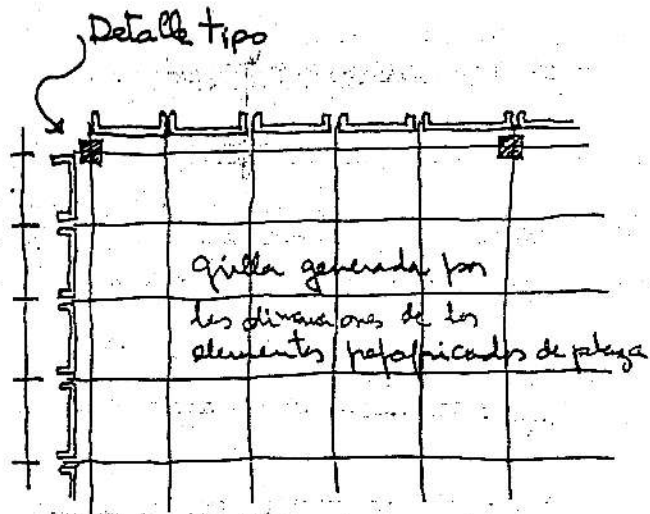 Detalle tipo
grilla generada por
las dimensiones de los
elementos prefabricados de plaza